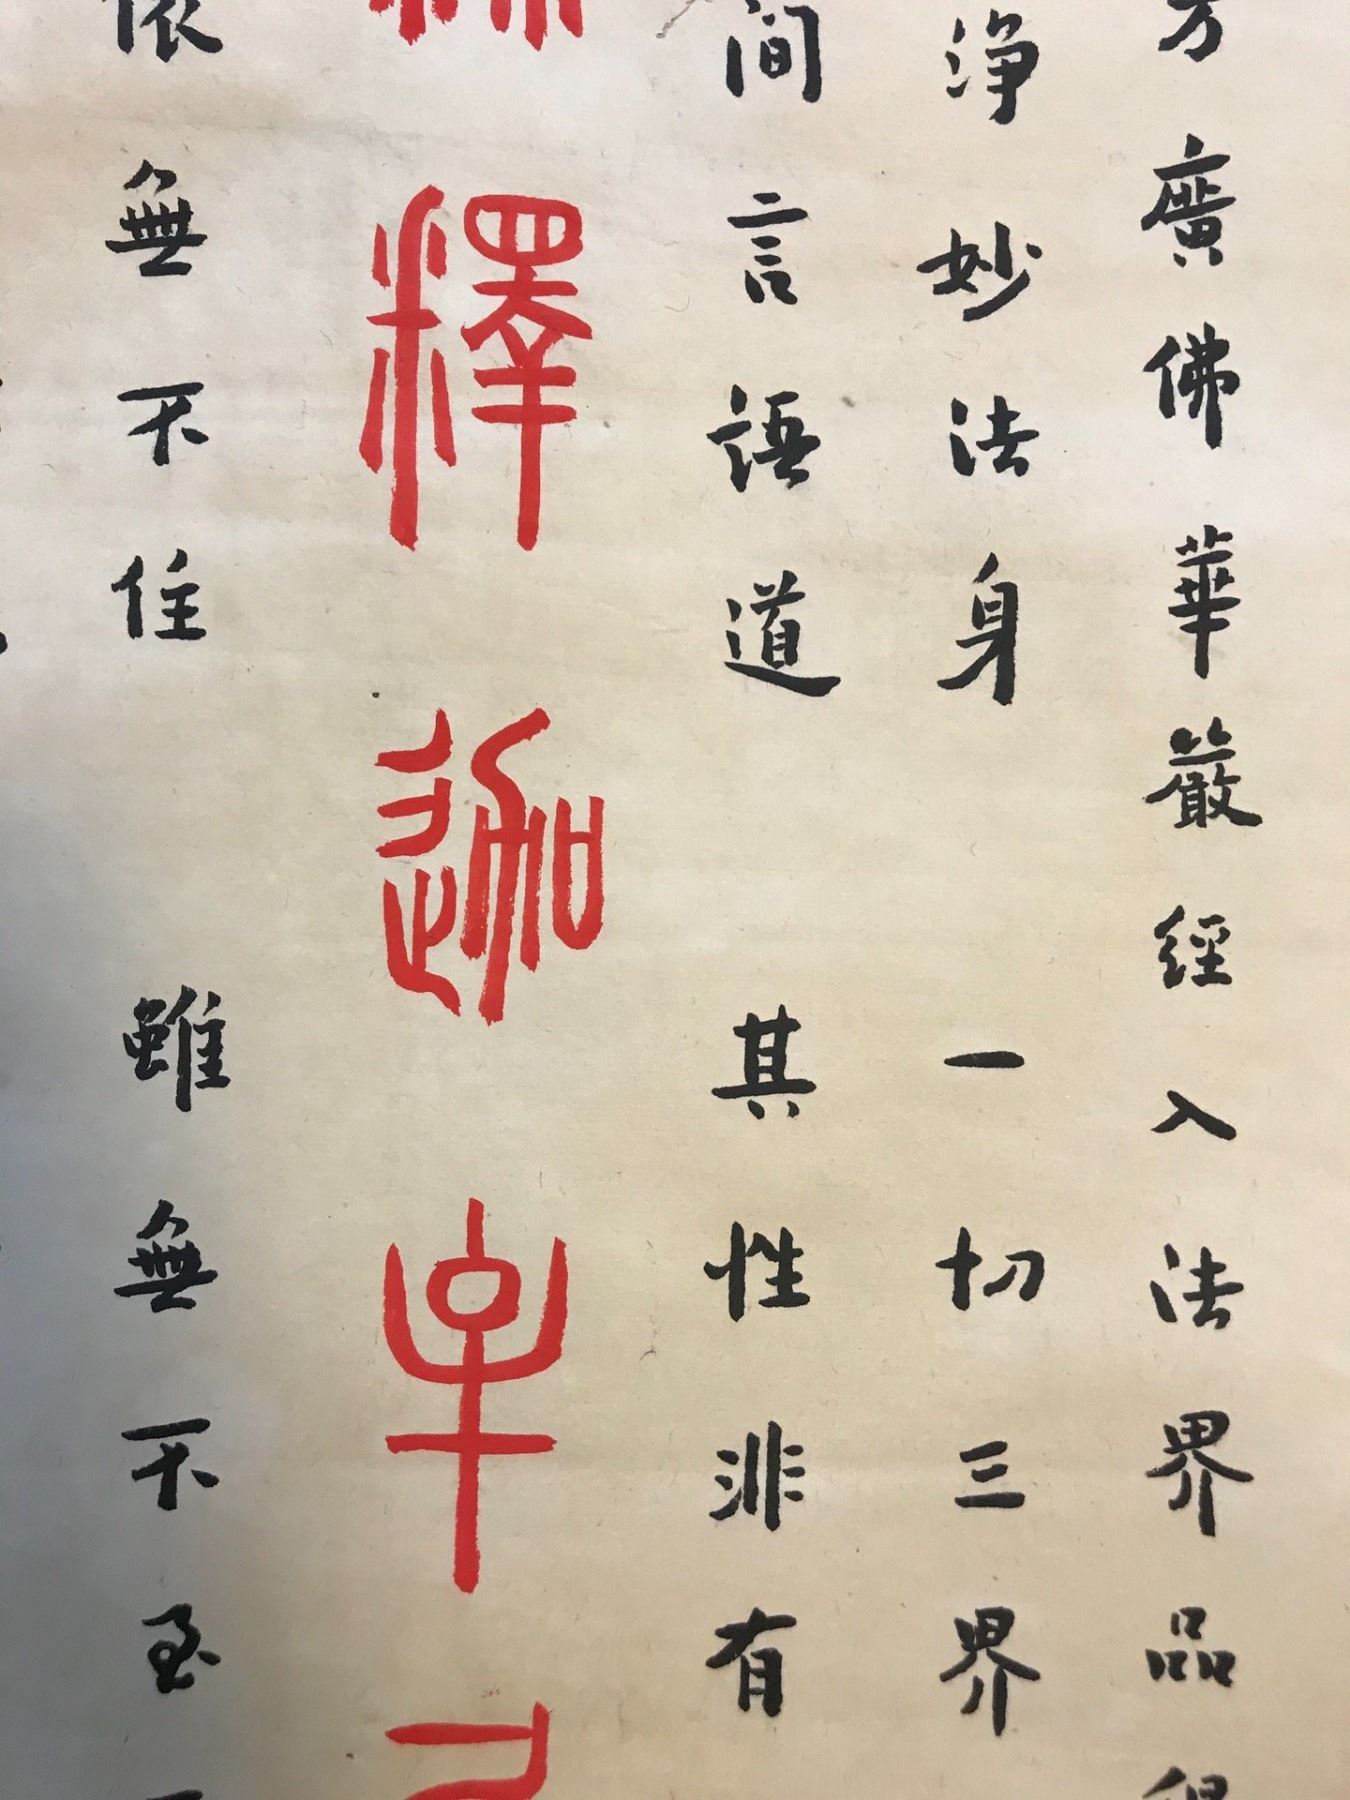 方廣佛華嚴經入法界品
淨妙法身 一切三界
間言語道 其性非有
釋迦牟
依無不住 雖無不至